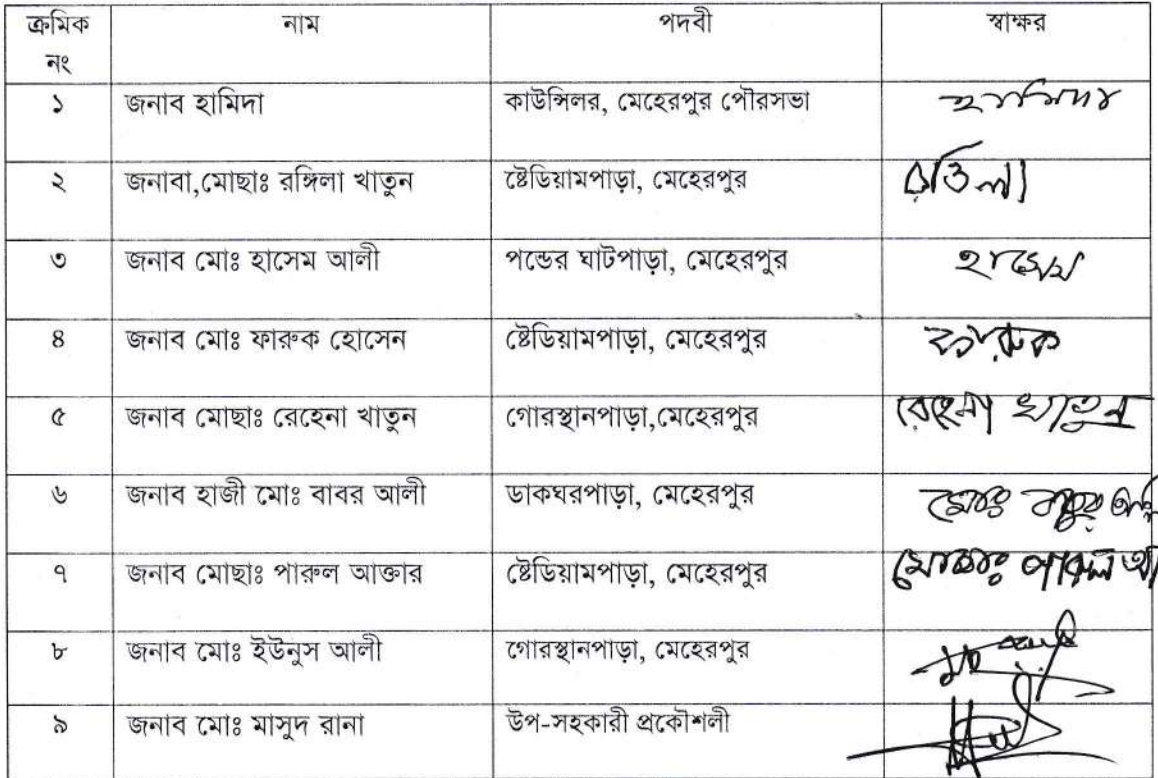 ক্রমিক নং নাম পদবী স্বাক্ষর
১ জনাব হামিদা কাউন্সিলর, মেহেরপুর পৌরসভা হামিদা
২ জনাবা,মোছাঃ রঙ্গিলা খাতুন ষ্টেডিয়ামপাড়া, মেহেরপুর
৩ জনাব মোঃ হাসেম আলী পন্ডের ঘাটপাড়া, মেহেরপুর হাসেম
৪ জনাব মোঃ ফারুক হোসেন ষ্টেডিয়ামপাড়া, মেহেরপুর ফারুক
৫ জনাব মোছাঃ রেহেনা খাতুন গোরস্থানপাড়া,মেহেরপুর রেহেনা খাতুন
৬ জনাব হাজী মোঃ বাবর আলী ডাকঘরপাড়া, মেহেরপুর মোঃ
৭ জনাব মোছাঃ পারুল আক্তার ষ্টেডিয়ামপাড়া, মেহেরপুর পারুল
৮ জনাব মোঃ ইউনুস আলী গোরস্থানপাড়া, মেহেরপুর
৯ জনাব মোঃ মাসুদ রানা উপ-সহকারী প্রকৌশলী